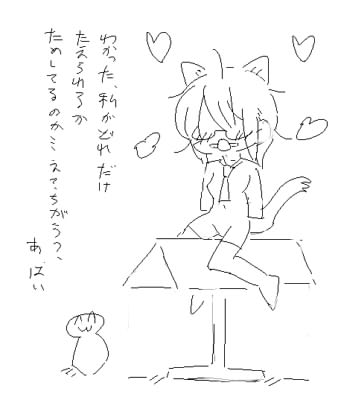 わかった、私がどれだけ
たえられるか
ためしてるのか…え?、ちがう?、
あ、はい